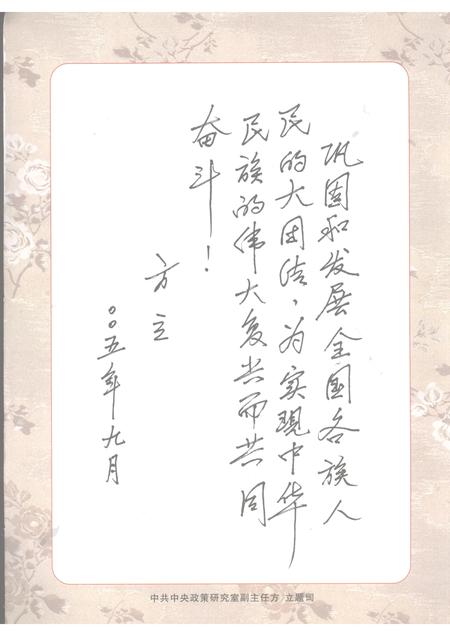 巩固和发展全国各族人
民的大团结，为实现中华
民族的伟大复兴而共同
奋斗！
方立
〇〇五年九月
中共中央政策研究室副主任方 立题词